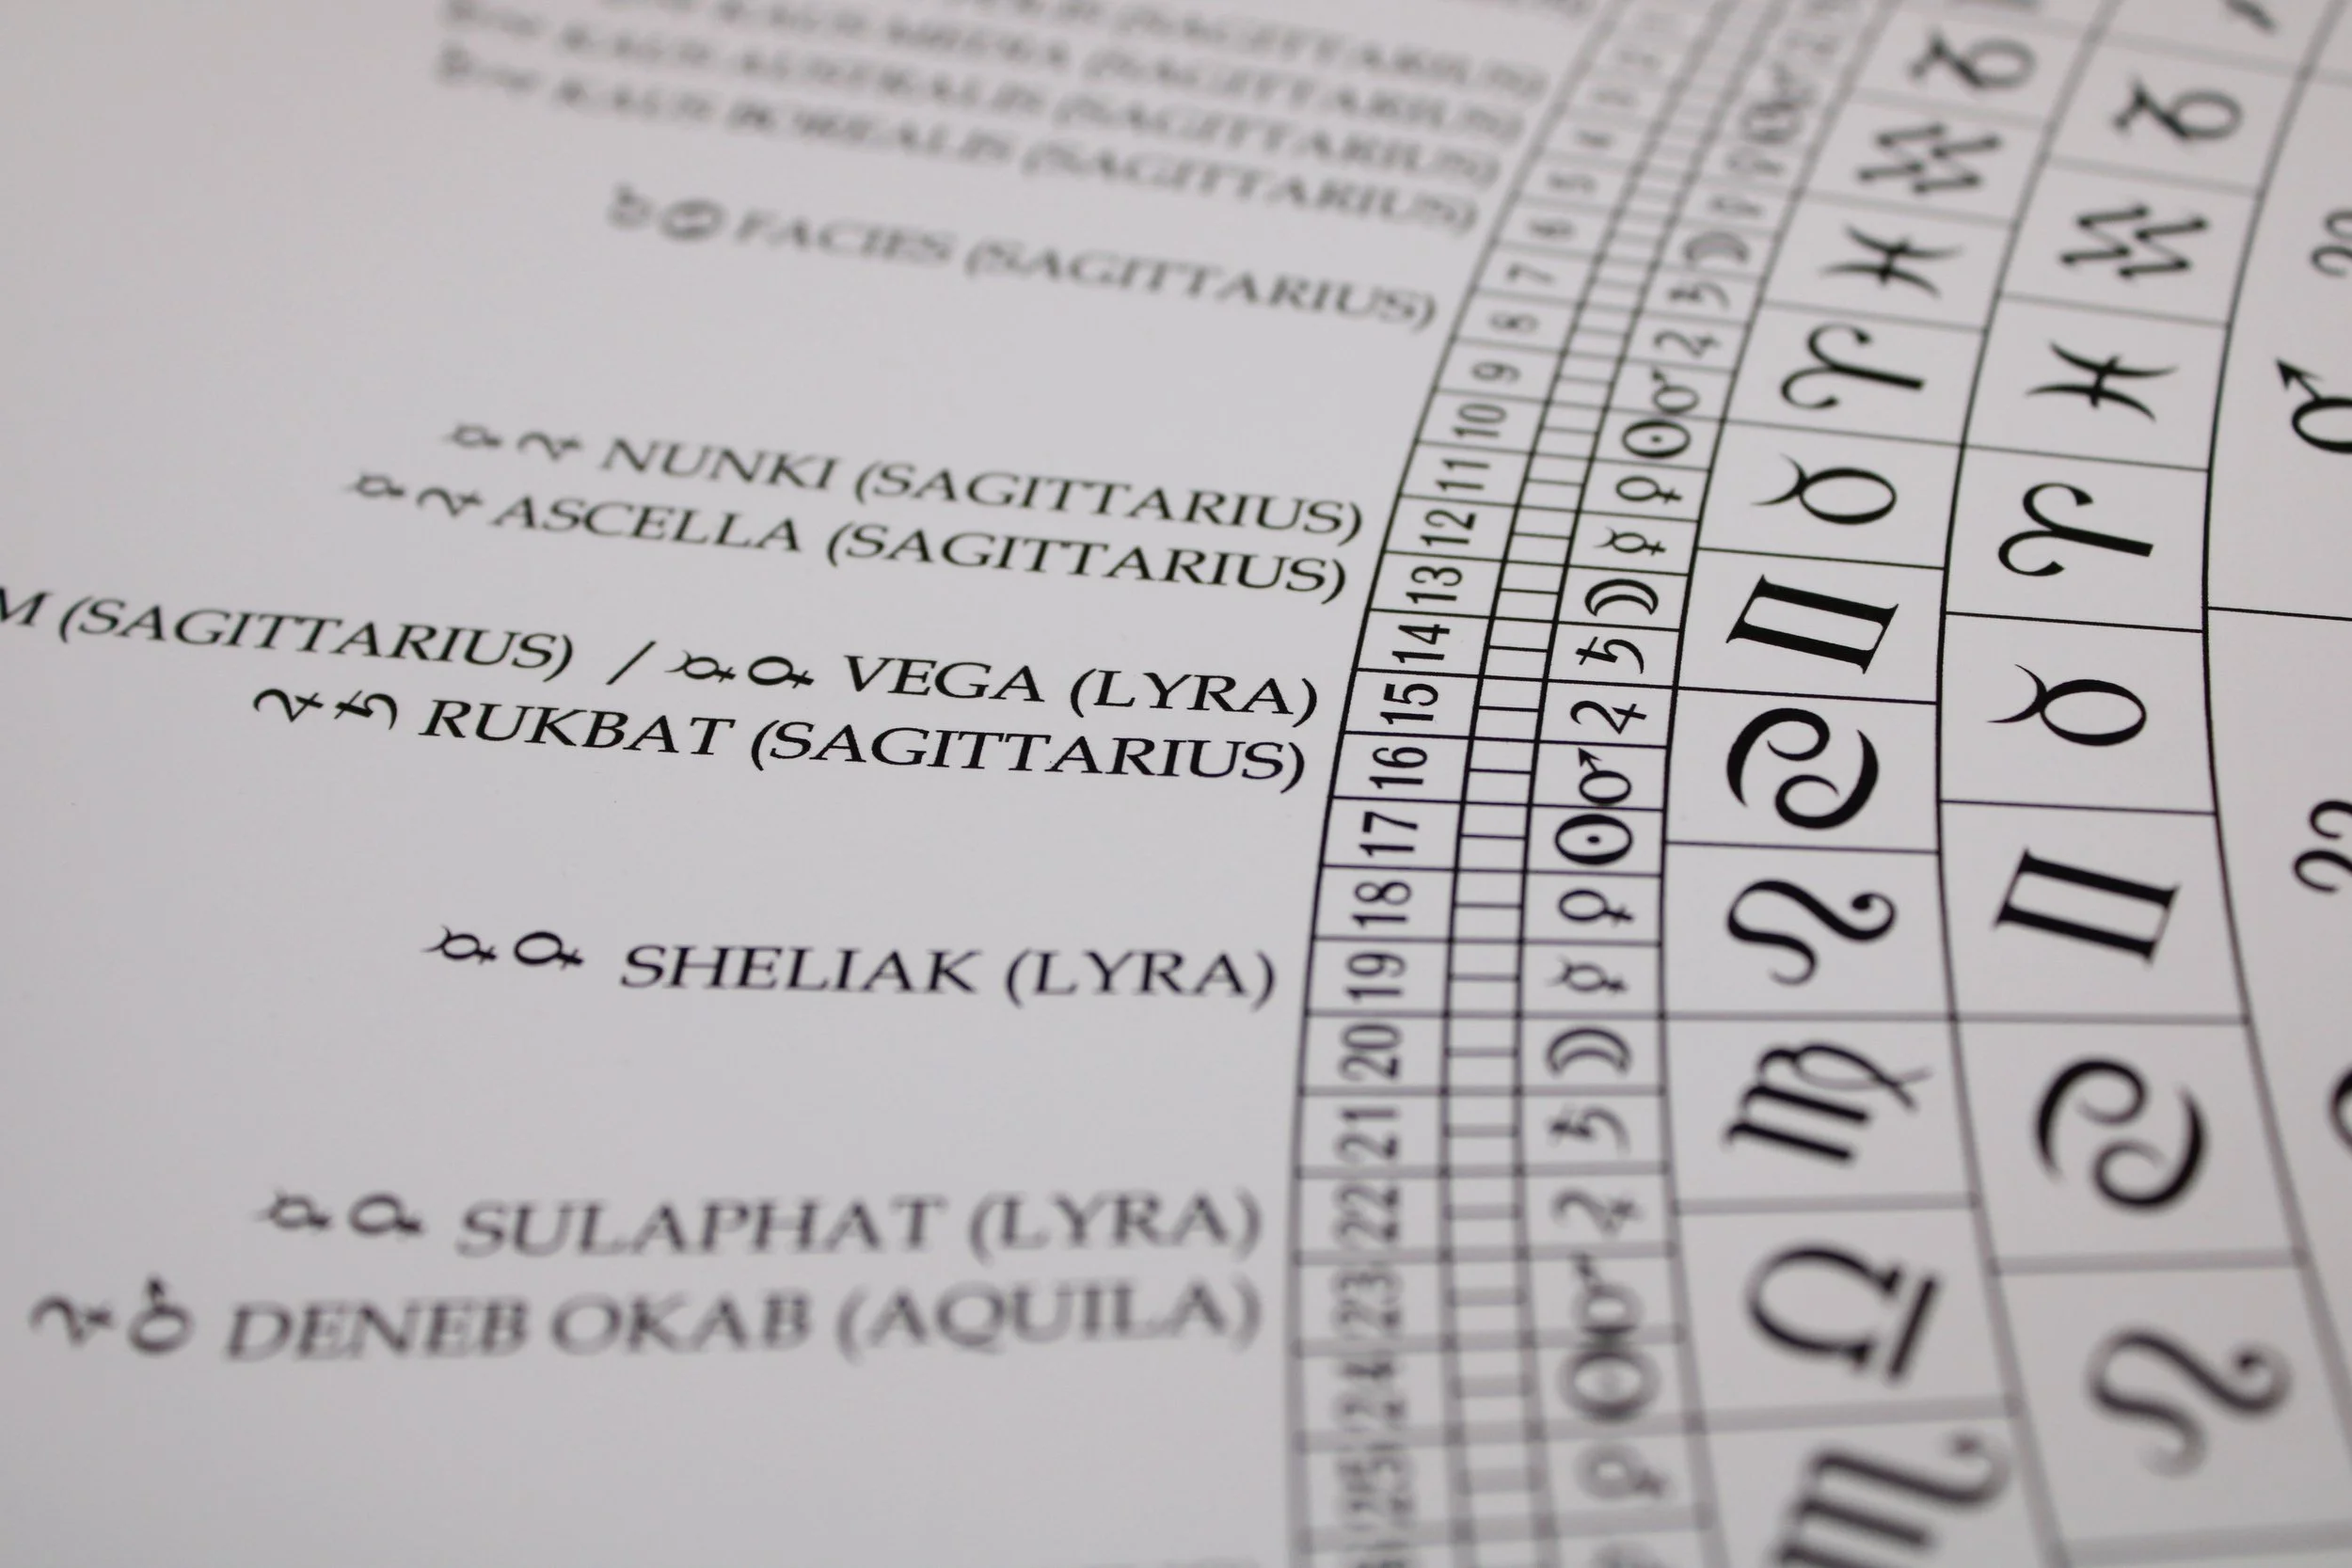 (SAGITTARIUS)
KAUS MEDIA (SAGITTARIUS)
KAUS AUSTRALIS (SAGITTARIUS)
KAUS BOREALIS (SAGITTARIUS)
FACIES (SAGITTARIUS)
☿♃ NUNKI (SAGITTARIUS)
☿♃ ASCELLA (SAGITTARIUS)
M (SAGITTARIUS) / ☿♀ VEGA (LYRA)
♃♄ RUKBAT (SAGITTARIUS)
☿♀ SHELIAK (LYRA)
☿♀ SULAPHAT (LYRA)
♃♂ DENEB OKAB (AQUILA)
4
5
6
7
8
9
10
11
12
13
14
15
16
17
18
19
20
21
22
23
24
25
☽
♄
♃
♂
☉
♀
☿
☽
♄
♃
♂
☉
♀
☿
☽
♄
♃
♂
☉
♀
♑
♒
♓
♈
♉
♊
♋
♌
♍
♎
♏
♑
♒
♓
♈
♉
♊
♋
♌
♂